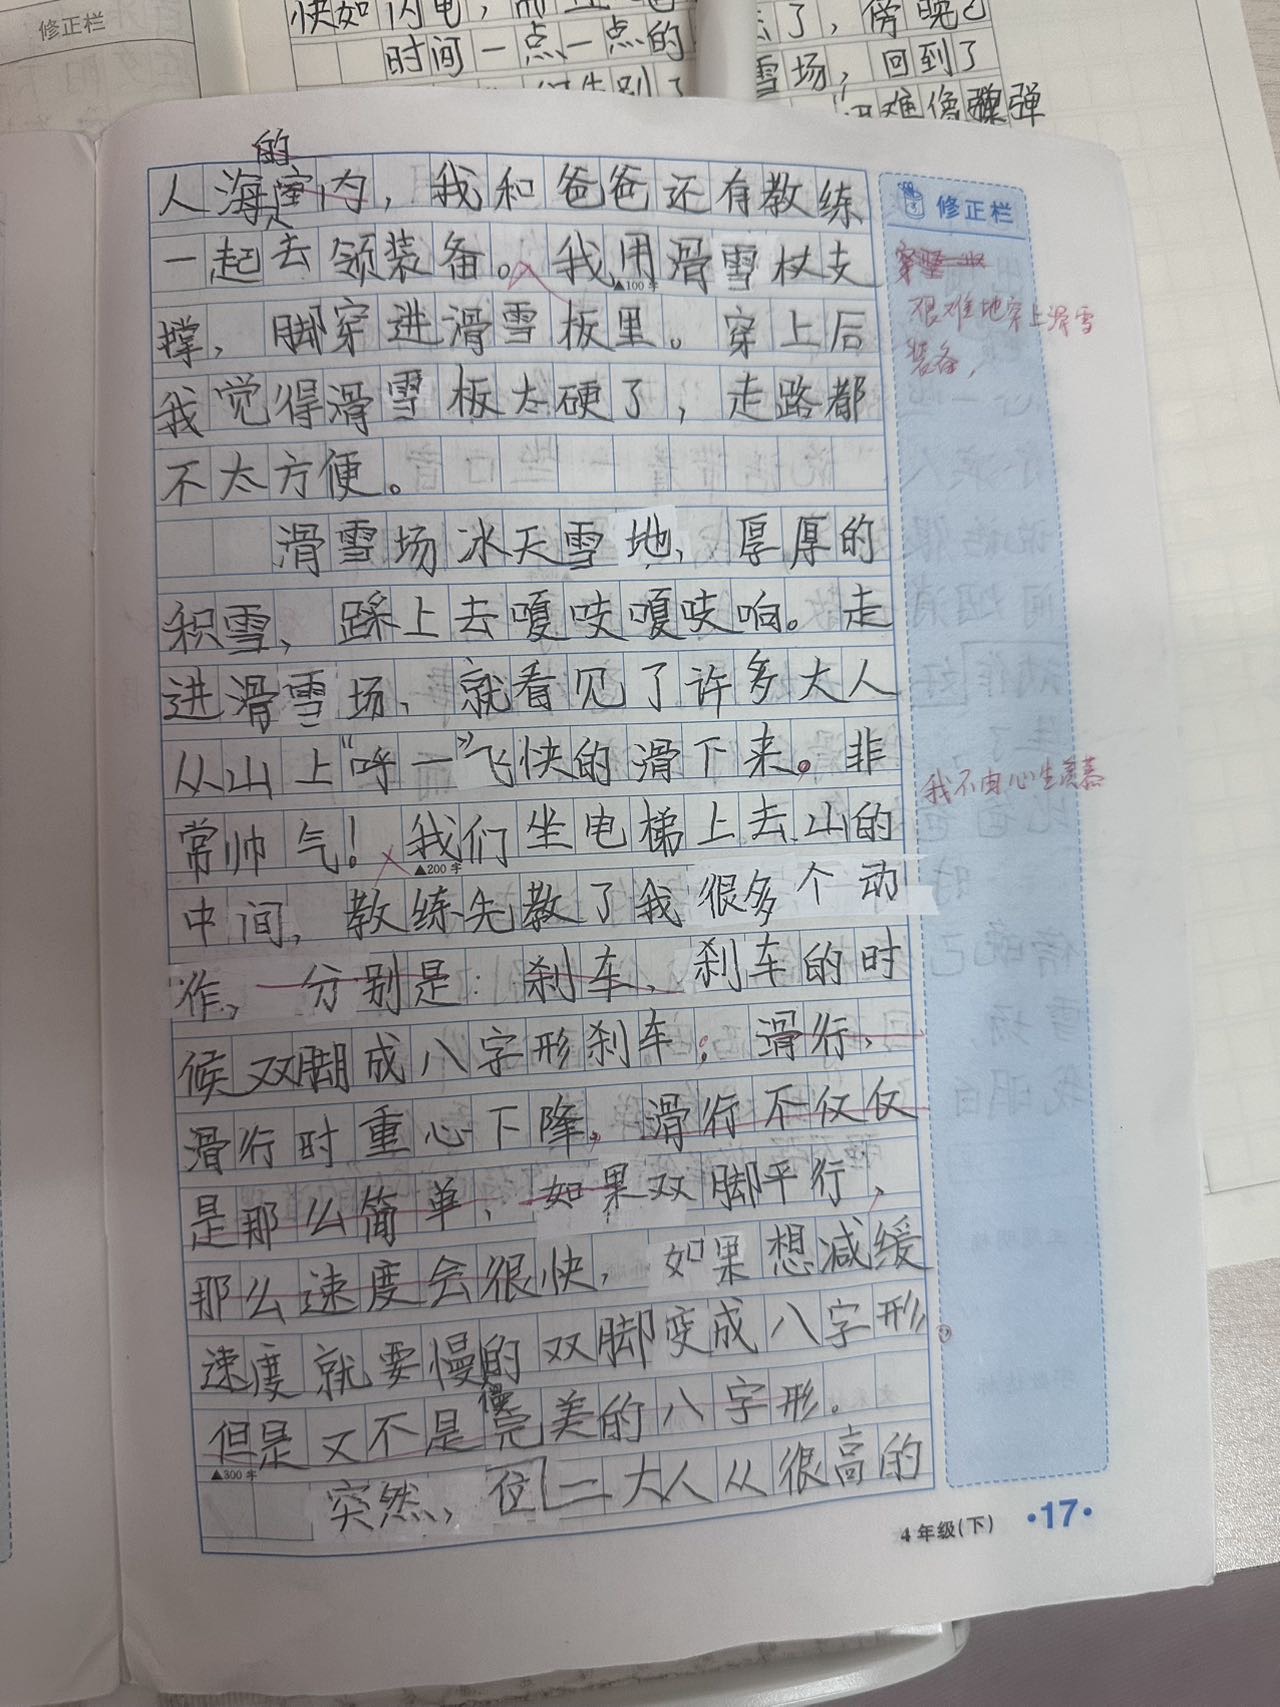 修正栏
快如闪电，
时间一点一点的
了，傍晚已
雪场，回到了
难像
弹
的
人海室内，我和爸爸还有教练
一起去领装备。我用滑雪杖支
▲100字
撑，脚穿进滑雪板里。穿上后
我觉得滑雪板太硬了，走路都
不太方便。
滑雪场冰天雪地，厚厚的
积雪，踩上去嘎吱嘎吱响。走
进滑雪场，就看见了许多大人
从山上“呼一”飞快的滑下来。非
常帅气！我们坐电梯上去山的
▲200字
中间，教练先教了我很多个动
作，分别是：刹车，刹车的时
候双脚成八字形刹车；滑行，
滑行时重心下降，滑行不仅仅
是那么简单，如果双脚平行，
那么速度会很快，如果想减缓
速度就要慢慢的双脚变成八字形
但是又不是完美的八字形。
▲300字
突然，位一二大人从很高的
修正栏
艰难地穿上滑雪
装备，
我不由心生羡慕
4年级(下) ·17·